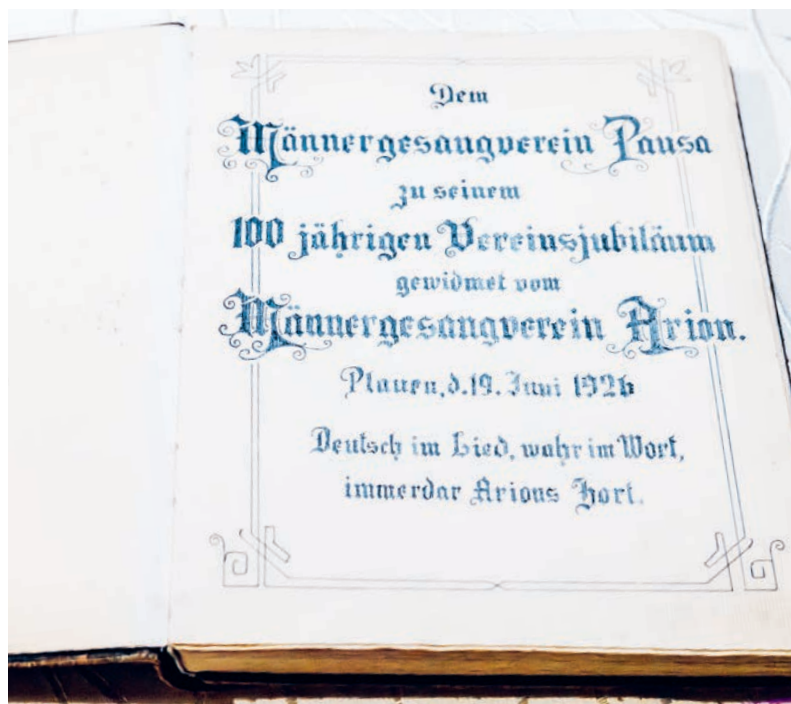 Dem
Männergesangverein Pausa
zu seinem
100 jährigen Vereinsjubiläum
gewidmet vom
Männergesangverein Arion.
Plauen, d. 19. Juni 1926
Deutsch im Lied, wahr im Wort,
immerdar Arions Hort.